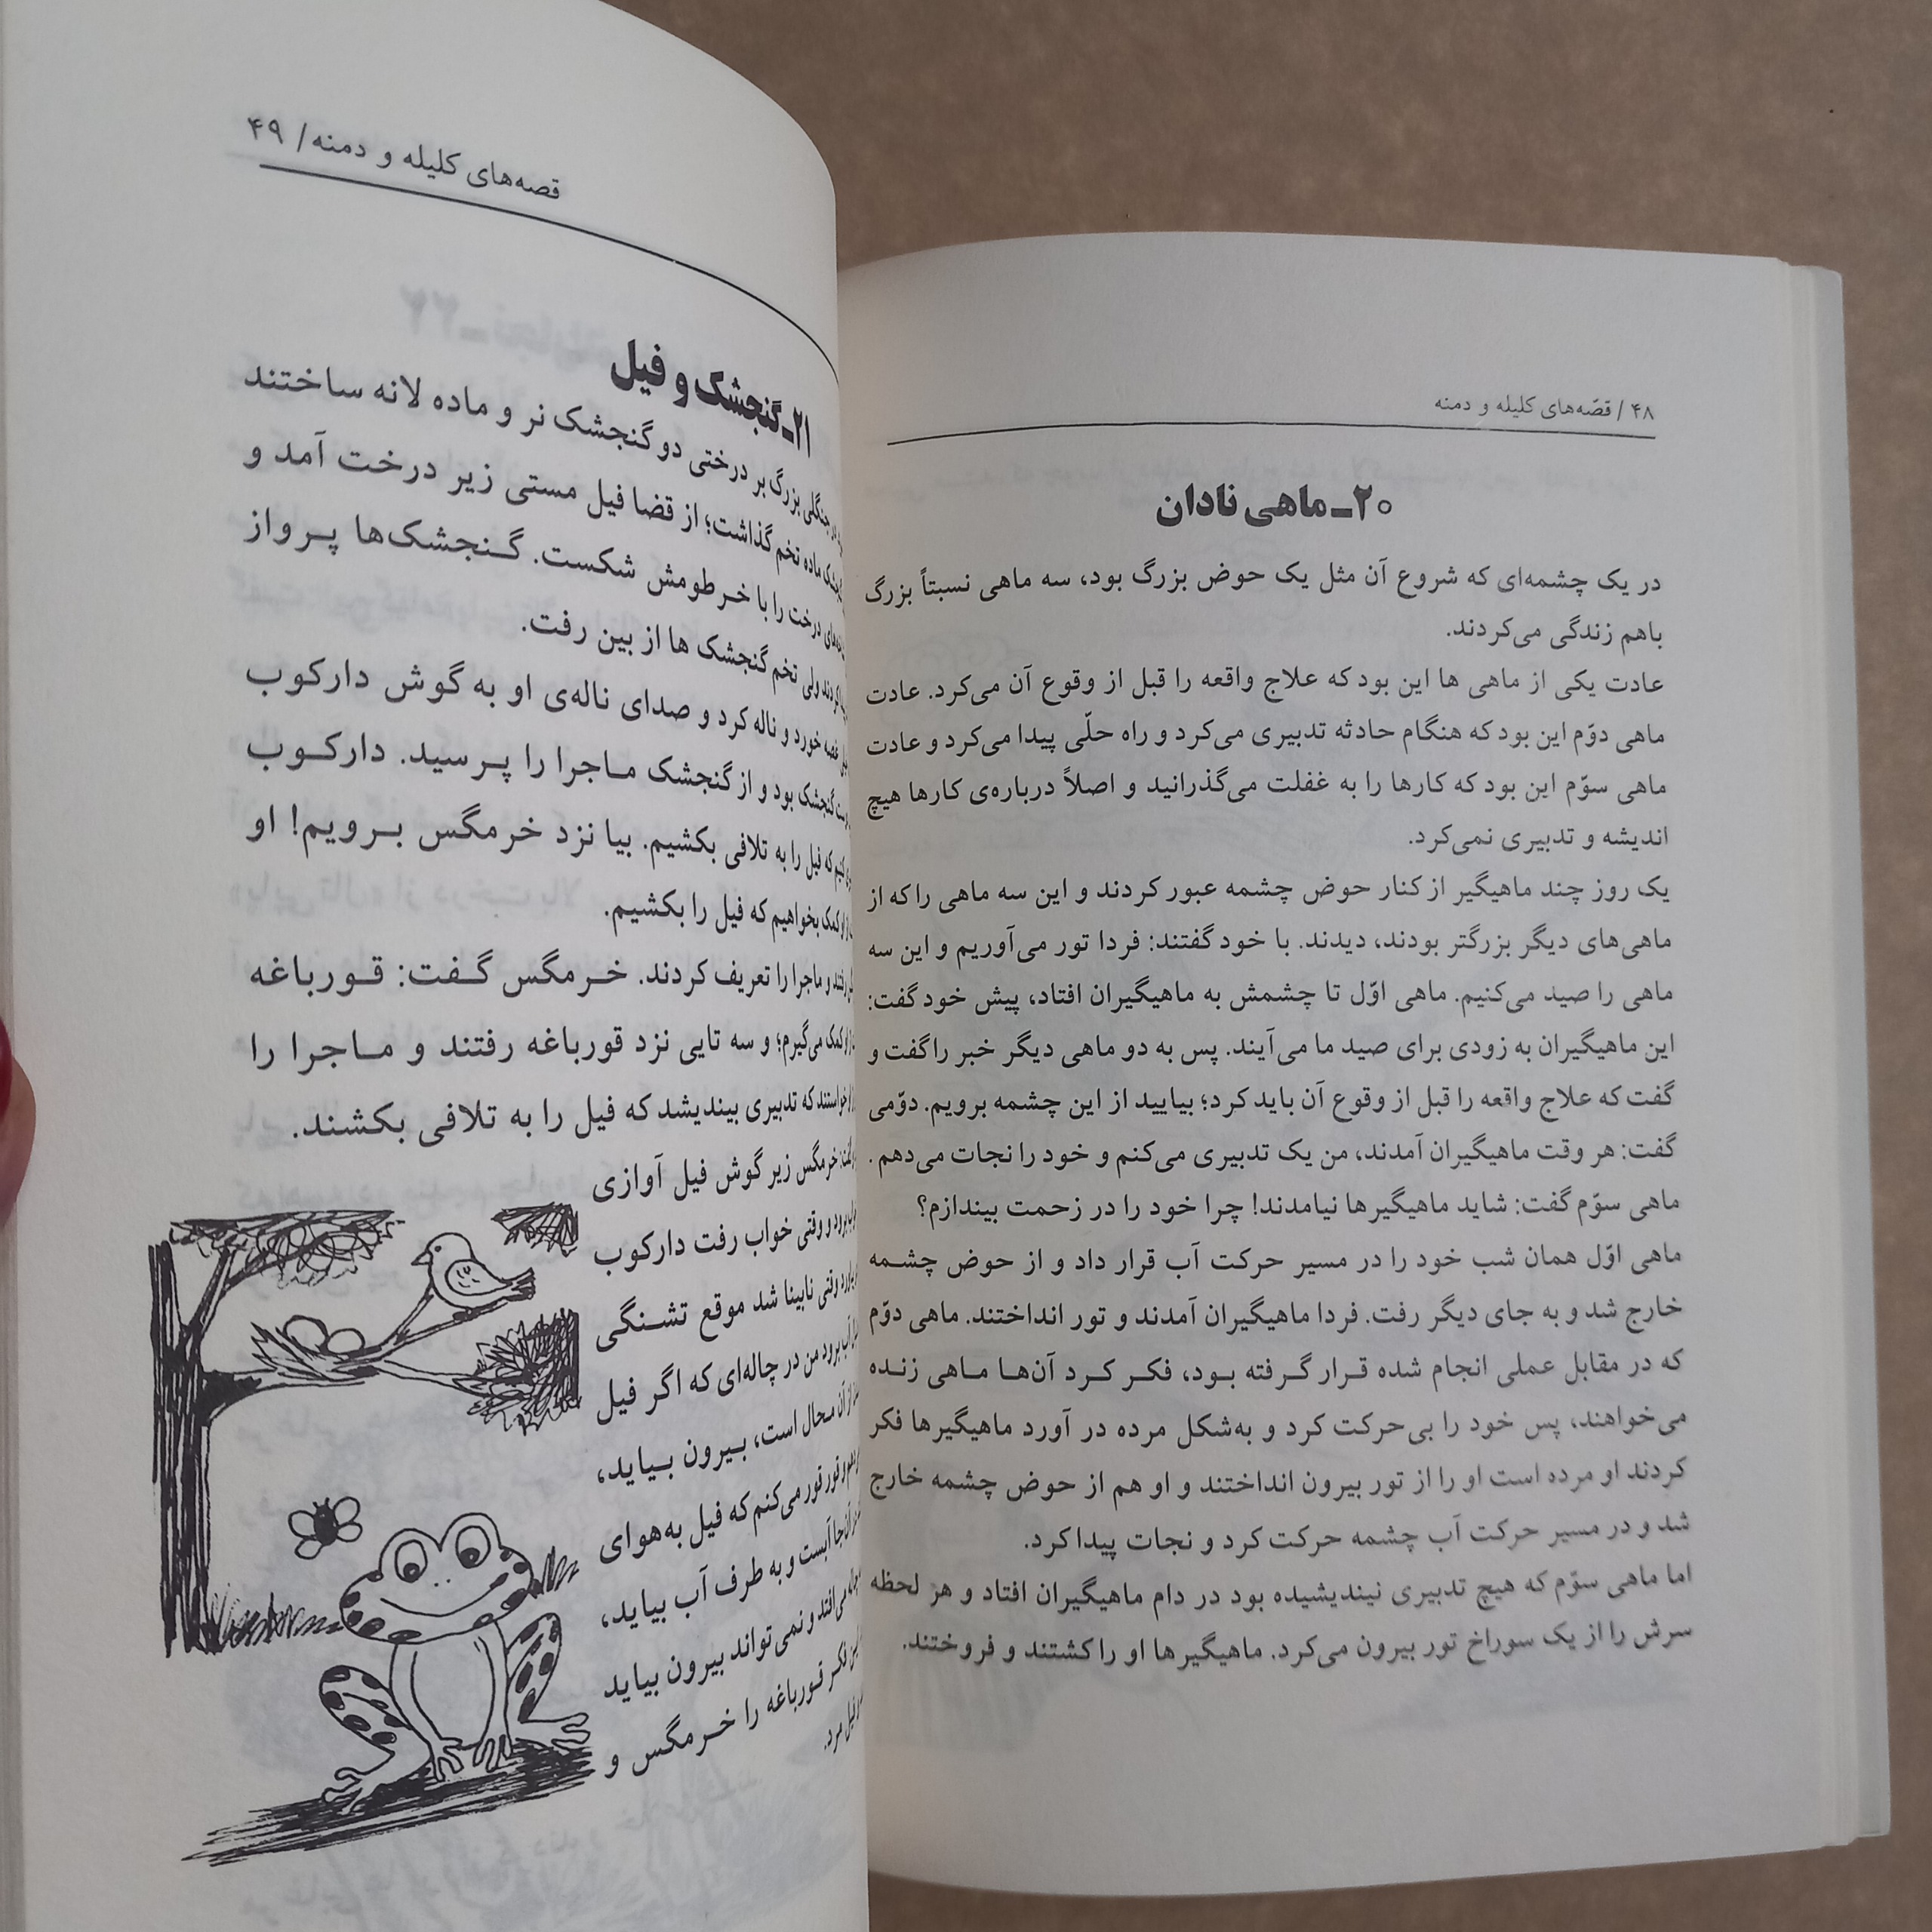 ۴۸ / قصّه‌های کلیله و دمنه
۲۰ـ ماهی نادان
در یک چشمه‌ای که شروع آن مثل یک حوض بزرگ بود، سه ماهی نسبتاً بزرگ
باهم زندگی می‌کردند.
عادت یکی از ماهی ها این بود که علاج واقعه را قبل از وقوع آن می‌کرد. عادت
ماهی دوّم این بود که هنگام حادثه تدبیری می‌کرد و راه حلّی پیدا می‌کرد و عادت
ماهی سوّم این بود که کارها را به غفلت می‌گذرانید و اصلاً درباره‌ی کارها هیچ
اندیشه و تدبیری نمی‌کرد.
یک روز چند ماهیگیر از کنار حوض چشمه عبور کردند و این سه ماهی را که از
ماهی‌های دیگر بزرگتر بودند، دیدند. با خود گفتند: فردا تور می‌آوریم و این سه
ماهی را صید می‌کنیم. ماهی اوّل تا چشمش به ماهیگیران افتاد، پیش خود گفت:
این ماهیگیران به زودی برای صید ما می‌آیند. پس به دو ماهی دیگر خبر را گفت و
گفت که علاج واقعه را قبل از وقوع آن باید کرد؛ بیایید از این چشمه برویم. دوّمی
گفت: هر وقت ماهیگیران آمدند، من یک تدبیری می‌کنم و خود را نجات می‌دهم .
ماهی سوّم گفت: شاید ماهیگیرها نیامدند! چرا خود را در زحمت بیندازم؟
ماهی اوّل همان شب خود را در مسیر حرکت آب قرار داد و از حوض چشمه
خارج شد و به جای دیگر رفت. فردا ماهیگیران آمدند و تور انداختند. ماهی دوّم
که در مقابل عملی انجام شده قرار گرفته بود، فکر کرد آن‌ها ماهی زنده
می‌خواهند، پس خود را بی‌حرکت کرد و به‌شکل مرده در آورد ماهیگیرها فکر
کردند او مرده است او را از تور بیرون انداختند و او هم از حوض چشمه خارج
شد و در مسیر حرکت آب چشمه حرکت کرد و نجات پیدا کرد.
اما ماهی سوّم که هیچ تدبیری نیندیشیده بود در دام ماهیگیران افتاد و هر لحظه
سرش را از یک سوراخ تور بیرون می‌کرد. ماهیگیرها او را کشتند و فروختند.
قصه‌های کلیله و دمنه / ۴۹
۲۱ـ گنجشک و فیل
جنگلی بزرگ بر درختی دو گنجشک نر و ماده لانه ساختند
ماده تخم گذاشت؛ از قضا فیل مستی زیر درخت آمد و
درخت را با خرطومش شکست. گنجشک‌ها پرواز
ولی تخم گنجشک ها از بین رفت.
غصه خورد و ناله کرد و صدای ناله‌ی او به گوش دارکوب
گنجشک بود و از گنجشک ماجرا را پرسید. دارکوب
که فیل را به تلافی بکشیم. بیا نزد خرمگس برویم! او
کمک بخواهیم که فیل را بکشیم.
رفتند و ماجرا را تعریف کردند. خرمگس گفت: قورباغه
کمک می‌گیرم؛ و سه تایی نزد قورباغه رفتند و ماجرا را
خواستند که تدبیری بیندیشد که فیل را به تلافی بکشند.
خرمگس زیر گوش فیل آوازی
برود و وقتی خواب رفت دارکوب
وقتی نابینا شد موقع تشنگی
آب برود من در چاله‌ای که اگر فیل
از آن محال است، بیرون بیاید،
قور قور می‌کنم که فیل به‌هوای
آن‌جا آبست و به طرف آب بیاید،
می‌افتد و نمی‌تواند بیرون بیاید
فکر قورباغه را خرمگس و
فیل مرد.